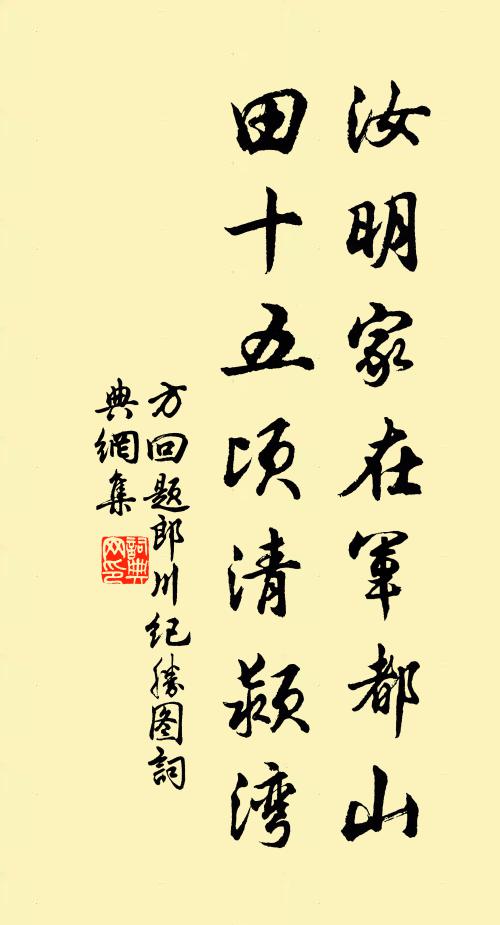 汝明家在军都山
田十五顷清颍湾
方回题郎川纪胜图詞
典網集
詞典网印